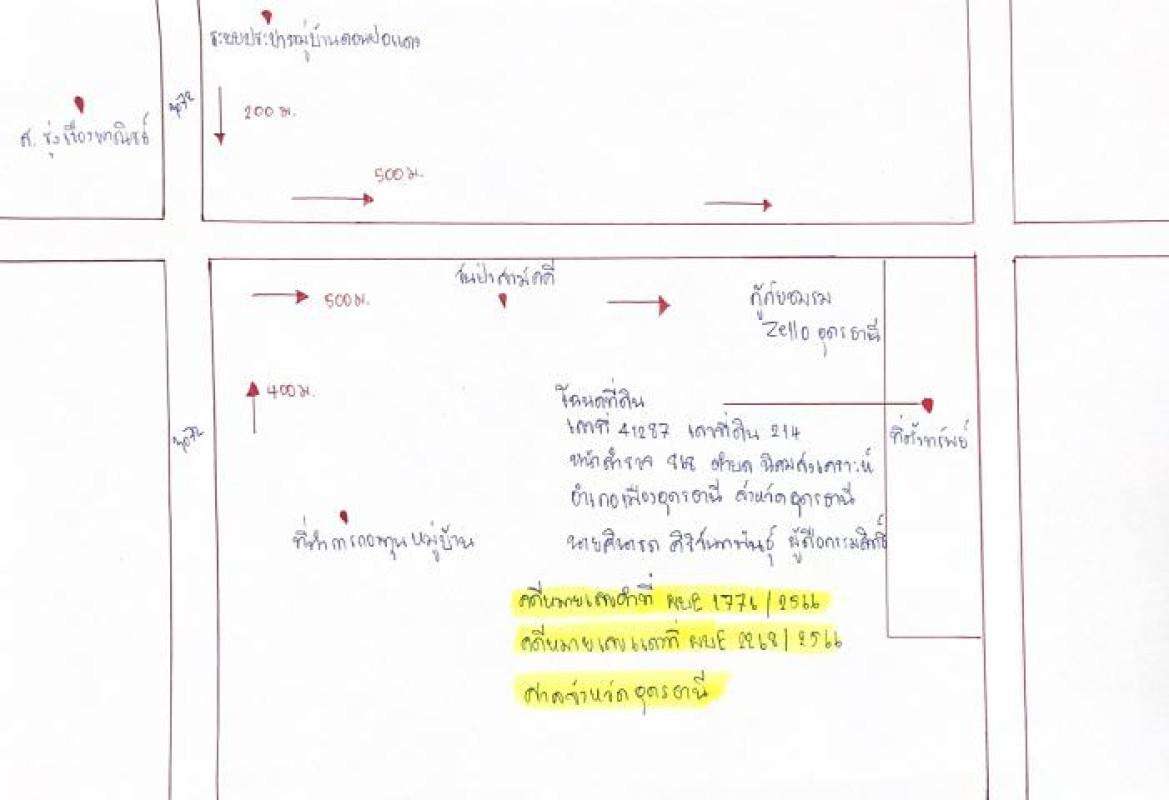 ระบบประปาหมู่บ้านดอนปอแดง
3072
200 ม.
ส. รุ่งเรืองพาณิชย์
500 ม.
ร้านป่าสามัคคี
500 ม.
กู้ภัยชมรม
Zello อุดรธานี
400 ม.
โฉนดที่ดิน
เลขที่ 41287 เลขที่ดิน 214
ที่ตั้งทรัพย์
3072
หน้าสำรวจ 868 ตำบล นิคมสงเคราะห์
อำเภอเมืองอุดรธานี จังหวัดอุดรธานี
ที่ทำการกองทุนหมู่บ้าน
นาย ผู้ถือกรรมสิทธิ์
คดีหมายเลขดำที่ ผบE 1776/2566
คดีหมายเลขแดงที่ ผบE 2268/2566
ศาลจังหวัดอุดรธานี